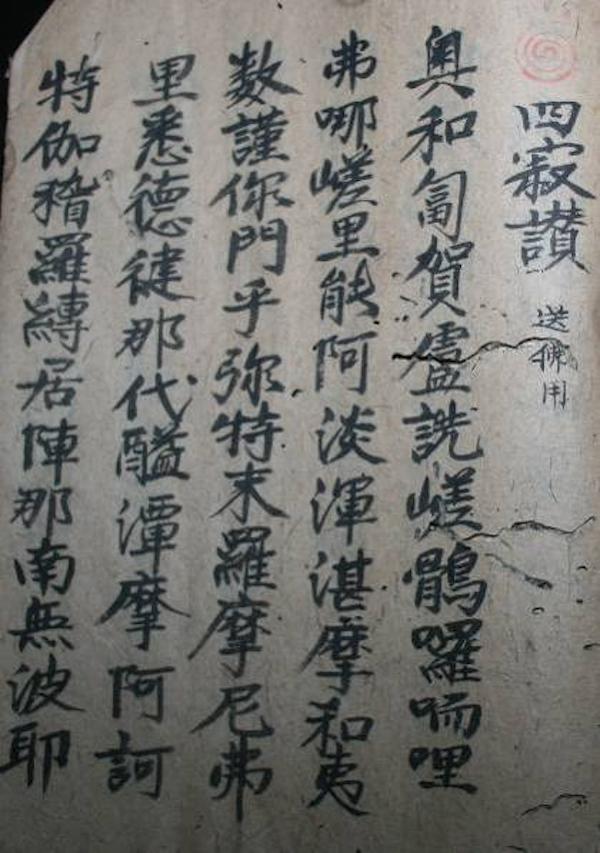 四寂讃 送佛用
奥和匐賀盧詵嵯鶻囉喃哩
弗哪嵯里能阿淡渾湛摩和夷
数謹你門乎弥特末羅摩尼弗
里悉德健那代醯潭摩阿訶
特伽稽羅縛居陣那南無波耶